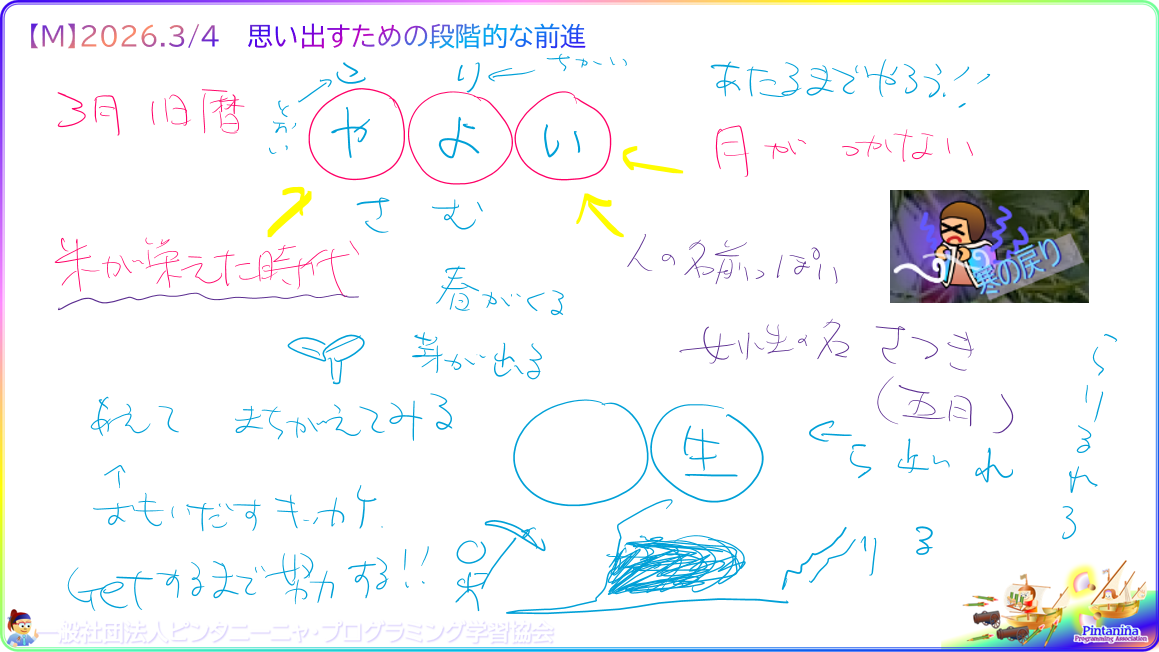 【M】2026.3/4 思い出すための段階的な前進
3月 旧暦
とおい
り
ちかい
や よ い
さ む
あたるまでやろう!!
月が つかない
寒の戻り
朱が栄えた時代
人の名前っぽい
春がくる
芽が出る
女性の名 さつき
(五月)
あえて まちがえてみる
生
ら 近い れ
らりるれろ
おもいだすキッカケ
Getするまで努力する!!
り る
一般社団法人ピンタニーニャ・プログラミング学習協会
Pintaniña
Programming Association